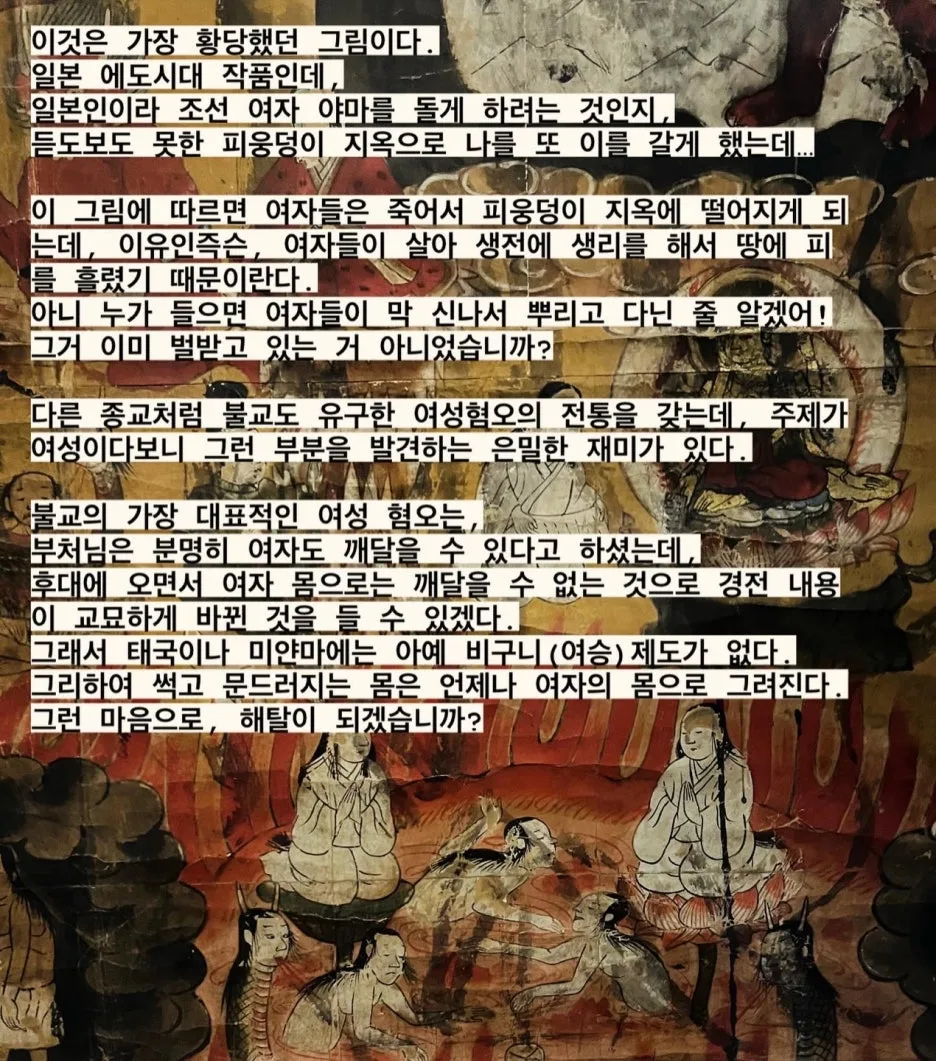 이것은 가장 황당했던 그림이다.
일본 에도시대 작품인데,
일본인이라 조선 여자 야마를 돌게 하려는 것인지,
듣도보도 못한 피웅덩이 지옥으로 나를 또 이를 갈게 했는데…
이 그림에 따르면 여자들은 죽어서 피웅덩이 지옥에 떨어지게 되
는데, 이유인즉슨, 여자들이 살아 생전에 생리를 해서 땅에 피
를 흘렸기 때문이란다.
아니 누가 들으면 여자들이 막 신나서 뿌리고 다닌 줄 알겠어!
그거 이미 벌받고 있는 거 아니었습니까?
다른 종교처럼 불교도 유구한 여성혐오의 전통을 갖는데, 주제가
여성이다보니 그런 부분을 발견하는 은밀한 재미가 있다.
불교의 가장 대표적인 여성 혐오는,
부처님은 분명히 여자도 깨달을 수 있다고 하셨는데,
후대에 오면서 여자 몸으로는 깨달을 수 없는 것으로 경전 내용
이 교묘하게 바뀐 것을 들 수 있겠다.
그래서 태국이나 미얀마에는 아예 비구니(여승)제도가 없다.
그리하여 썩고 문드러지는 몸은 언제나 여자의 몸으로 그려진다.
그런 마음으로, 해탈이 되겠습니까?